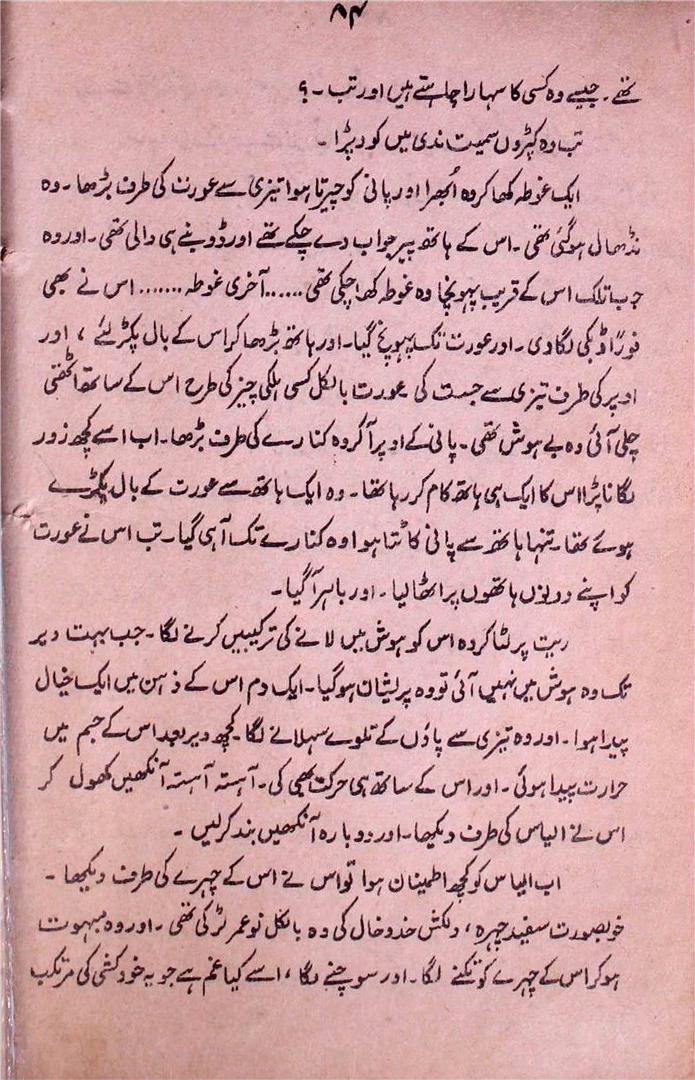 ۸۴
تھے۔ جیسے وہ کسی کا سہارا چاہتے ہیں اور تب ۔ ؟
تب وہ کپڑوں سمیت ندی میں کود پڑا ۔
ایک غوطہ کھا کر وہ اُبھرا اور پانی کو چیرتا ہوا تیزی سے عورت کی طرف بڑھا۔ وہ
نڈھال ہو گئی تھی۔ اس کے ہاتھ پیر جواب دے چکے تھے اور ڈوبنے ہی والی تھی۔ اور وہ
جب تلک اس کے قریب پہونچا وہ غوطہ کھا چکی تھی ...... آخری غوطہ ....... اس نے بھی
فوراً ڈبکی لگا دی ۔ اور عورت تک پہونچ گیا۔ اور ہاتھ بڑھا کر اس کے بال پکڑ لئے ، اور
اوپر کی طرف تیزی سے جست کی عورت بالکل کسی ہلکی چیز کی طرح اس کے ساتھ اٹھتی
چلی آئی وہ بے ہوش تھی۔ پانی کے اوپر آ کر وہ کنارے کی طرف بڑھا۔ اب اسے کچھ زور
لگانا پڑا اس کا ایک ہی ہاتھ کام کر رہا تھا۔ وہ ایک ہاتھ سے عورت کے بال پکڑے
ہوئے تھا۔ تنہا ہاتھ سے پانی کاٹتا ہوا وہ کنارے تک آ ہی گیا۔ تب اس نے عورت
کو اپنے دونوں ہاتھوں پر اٹھا لیا ۔ اور باہر آ گیا۔
ریت پر لٹا کر وہ اس کو ہوش میں لانے کی ترکیبیں کرنے لگا۔ جب بہت دیر
تک وہ ہوش میں نہیں آئی تو وہ پریشان ہو گیا۔ ایک دم اس کے ذہن میں ایک خیال
پیدا ہوا ۔ اور وہ تیزی سے پاؤں کے تلوے سہلانے لگا۔ کچھ دیر بعد اس کے جسم میں
حرارت پیدا ہوئی ۔ اور اس کے ساتھ ہی حرکت بھی کی۔ آہستہ آہستہ آنکھیں کھول کر
اس نے الیاس کی طرف دیکھا۔ اور دوبارہ آنکھیں بند کر لیں ۔
اب الیاس کو کچھ اطمینان ہوا تو اس نے اس کے چہرے کی طرف دیکھا ۔
خوبصورت سفید چہرہ ، دلکش خدوخال کی وہ بالکل نو عمر لڑکی تھی ۔ اور وہ مبہوت
ہو کر اس کے چہرے کو تکنے لگا۔ اور سوچنے لگا ، اسے کیا غم ہے جو یہ خودکشی کی مرتکب